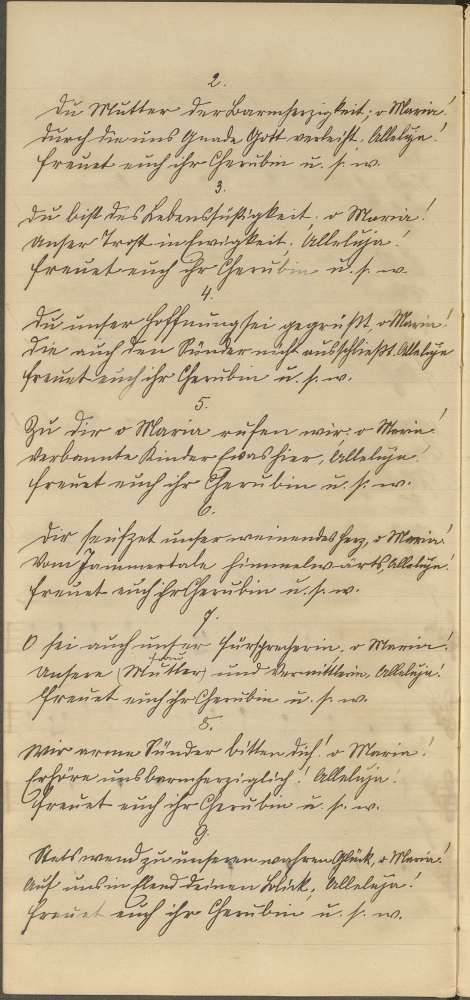 2.
Du Mutter der Barmherzigkeit, o Maria!
durch die uns Gnade Gott verleiht, Alleluja!
freuet euch ihr Cherubin u. s. w.
3.
Du bist des Lebenssüßigkeit o Maria!
Unser Trost in Ewigkeit, Alleluja!
freuet euch ihr Cherubin u. s. w.
4.
Du unser Hoffnung sei gegrüßt, o Maria!
Die auch den Sünder nicht ausschließt. Alleluja
freuet euch ihr Cherubin u. s. w.
5.
Zu dir o Maria rufen wir: o Maria!
Verbannte Kinder Evas hier, Alleluja!
freuet euch ihr Cherubin u. s. w.
6.
Dir seufzet unser weinendes Herz, o Maria!
Vom Jammertale himmelwärts, Alleluja!
freuet euch ihr Cherubin u. s. w.
7.
O sei auch unser Fürsprecherin, o Maria!
Unsere (Mutter) und Vermittlerin, Alleluja!
freuet euch ihr Cherubin u. s. w.
8.
Wir arme Sünder bitten dich! o Maria!
Erhöre uns barmherziglich! Alleluja!
freuet euch ihr Cherubin u. s. w.
9.
Stets wend zu unseren wahren Glück, o Maria!
Auf uns in Elend deinen Blick, Alleluja!
freuet euch ihr Cherubin u. s. w.